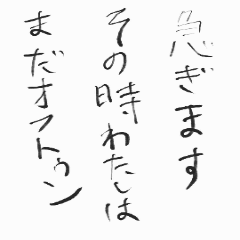 急ぎます
その時わたしは
まだオフトゥン